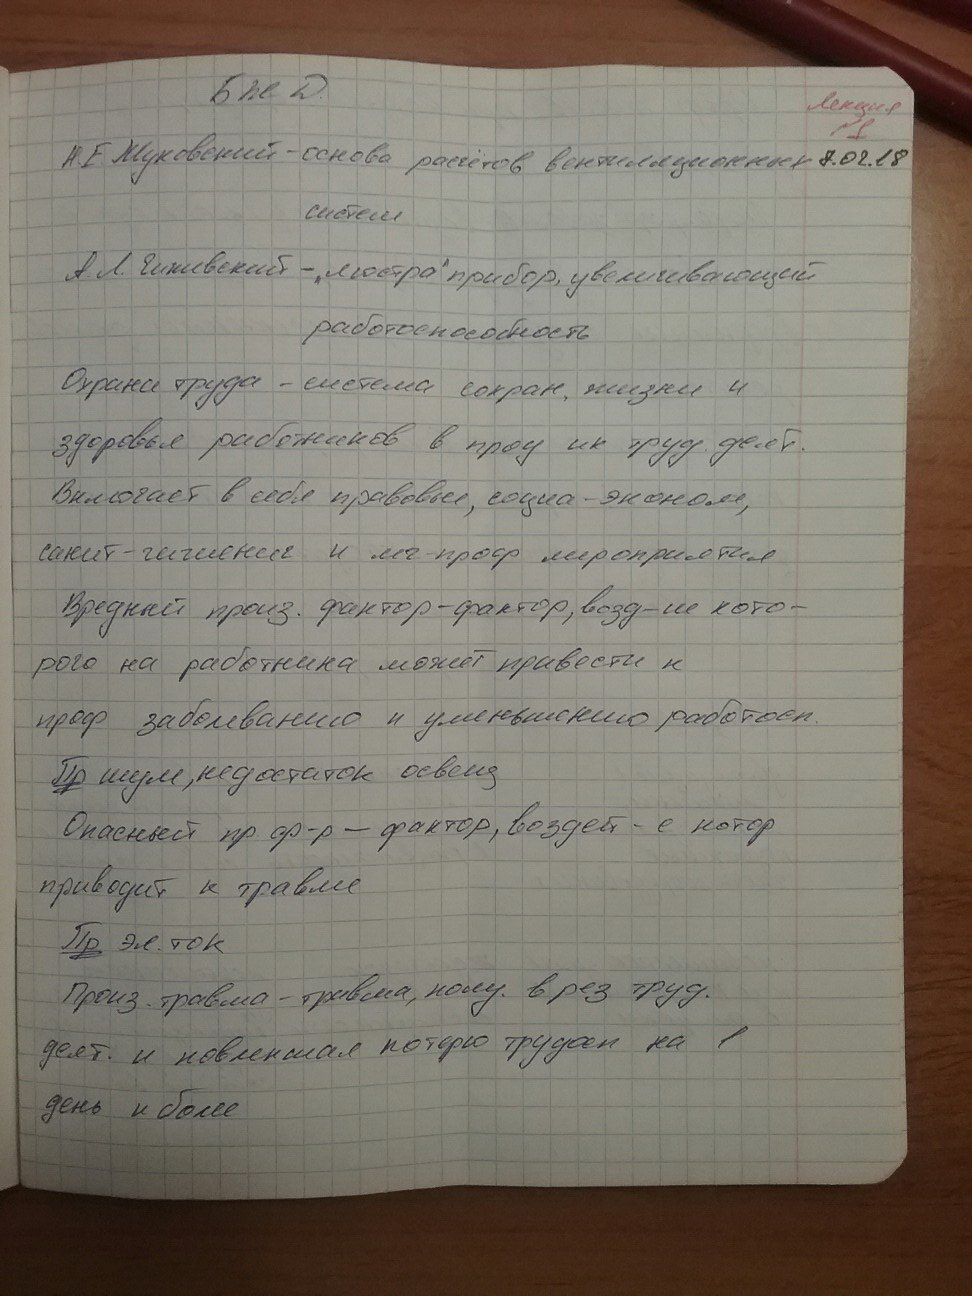 БЖД.
Лекция
№1
Н.Е Жуковский - основа расчётов вентиляционных 7.02.18
систем
А.Л. Чижевский - "люстра" прибор, увеличивающий
работоспособность
Охрана труда - система сохран. жизни и
здоровья работников в проц их труд. деят.
Включает в себя правовые, социа-эконом,
санит-гигиенич и леч-проф мероприятия
Вредный произ. фактор - фактор, возд-ие кото-
рого на работника может привести к
проф заболеванию и уменьшению работосп.
Пр шум, недостаток освещ
Опасный пр ф-р - фактор, воздей-е котор
приводит к травме
Пр эл. ток
Произ. травма - травма, получ. в рез труд.
деят. и повлекшая потерю трудосп на 1
день и более